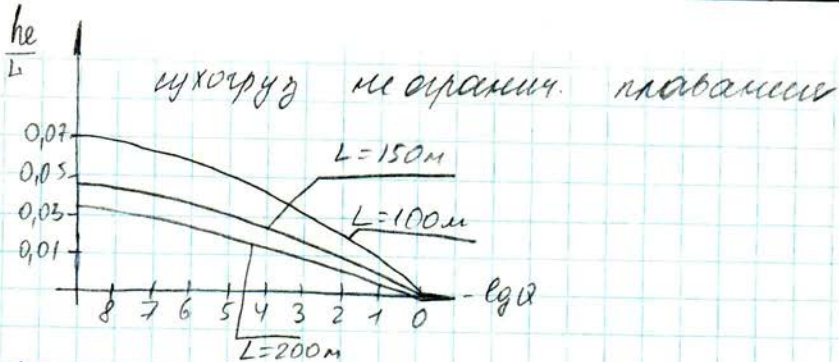 he
L
сухогруз неогранич. плавания
0,07
0,05
0,03
0,01
L=150м
L=100м
8 7 6 5 4 3 2 1 0
-lgQ
L=200м